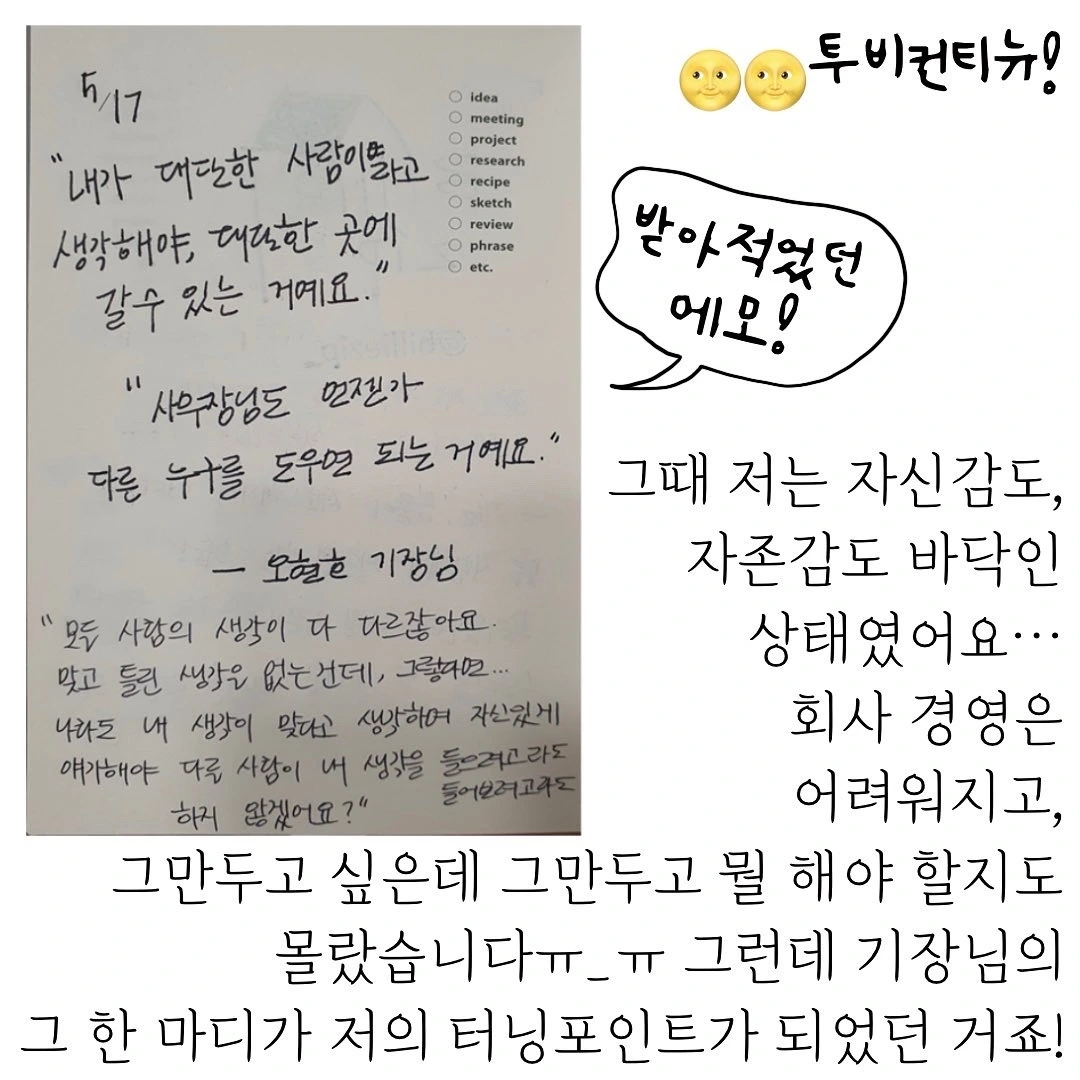 투비컨티뉴!
5/17
idea
meeting
project
research
recipe
sketch
review
phrase
etc.
"내가 대단한 사람이라고
생각해야, 대단한 곳에
갈 수 있는 거예요."
도 언젠가
다른 누구를 도우면 되는 거예요."
— 기장님
"모든 사람의 생각이 다 다르잖아요.
맞고 틀린 생각은 없는건데, 그렇다면...
나라도 내 생각이 맞다고 생각하며 자신있게
얘기해야 다른 사람이 내 생각을 들으려고라도
들어보려고라도
하지 않겠어요?"
받아적었던
메모!
그때 저는 자신감도,
자존감도 바닥인
상태였어요…
회사 경영은
어려워지고,
그만두고 싶은데 그만두고 뭘 해야 할지도
몰랐습니다ㅠ_ㅠ 그런데 기장님의
그 한 마디가 저의 터닝포인트가 되었던 거죠!